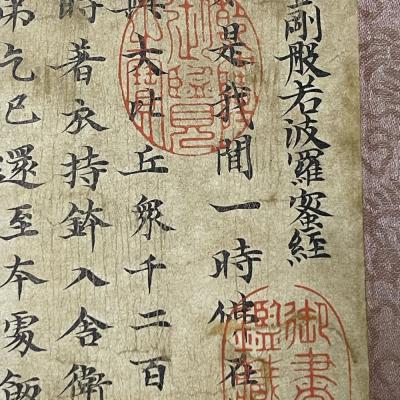 剛般若波羅蜜經
是我聞一時佛在
與大比丘眾千二百
時著衣持鉢入舍衛
第乞已還至本處飯
御書
鑑藏